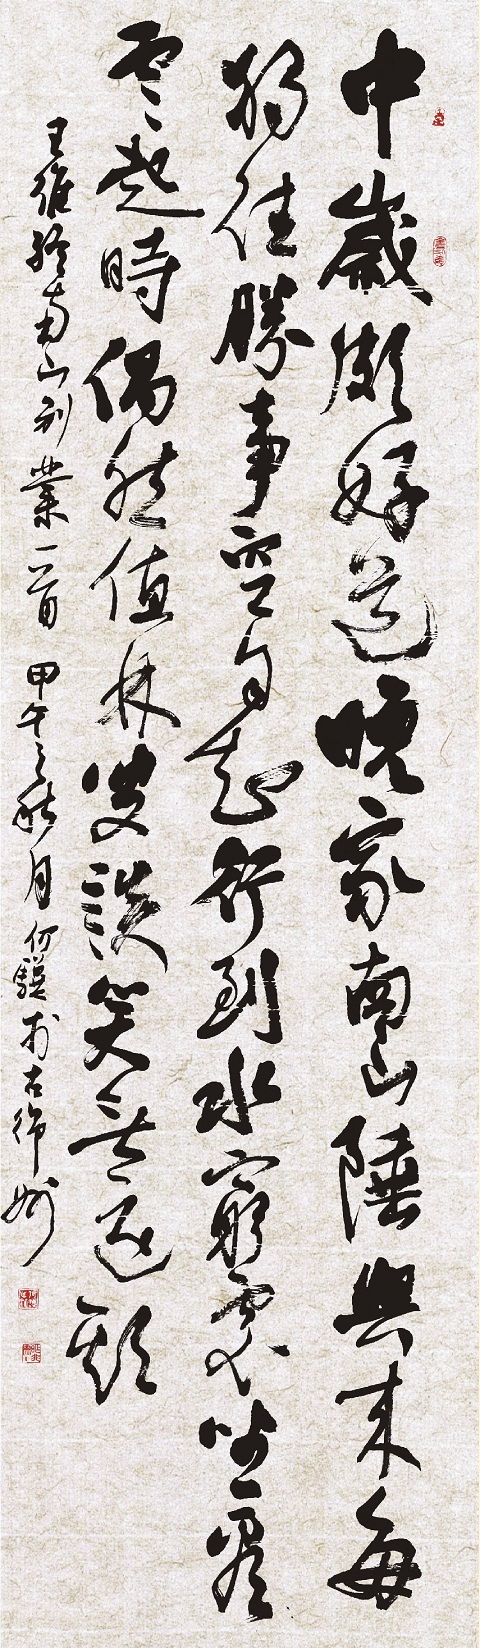 中歲頗好道晚家南山陲興来每
獨往勝事空自知行到水窮處坐看
雲起時偶然值林叟談笑無還期
王維終南山別業一首 甲午之秋月 何 於古